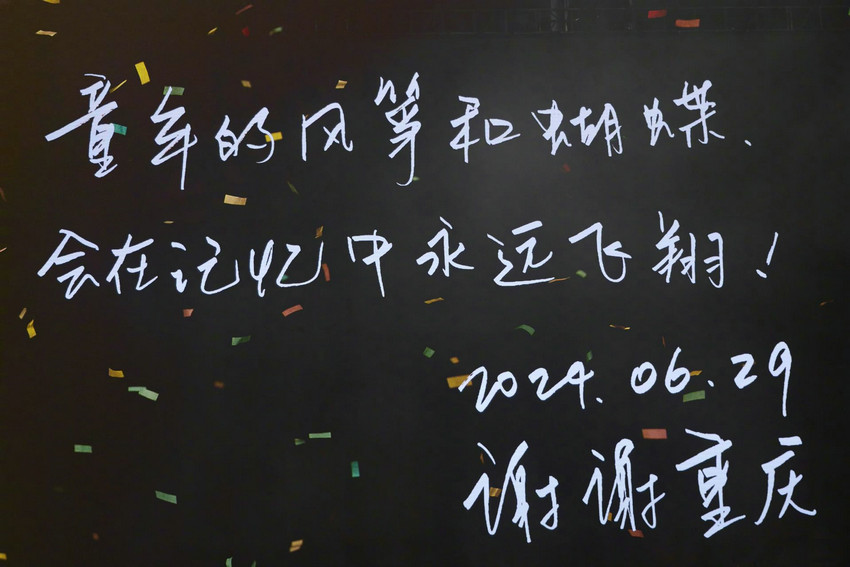 童年的风筝和蝴蝶、
会在记忆中永远飞翔!
2024.06.29
谢谢重庆